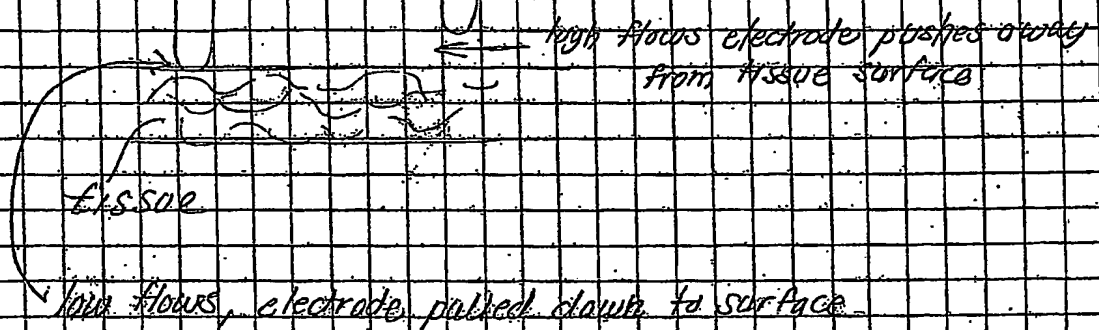 high flows electrode pushes away
from tissue surface
tissue
low flows, electrode pulled down to surface